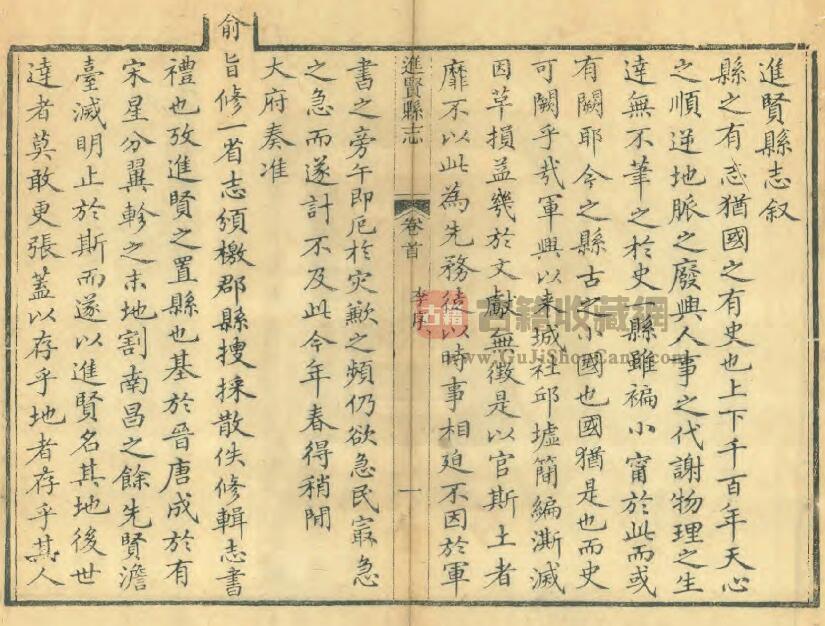 進賢縣志叙
縣之有志猶國之有史也上下千百年天心
之順逆地脈之廢興人事之代謝物理之生
達無不筆之於史一縣雖褊小甯於此而或
有闕耶今之縣古之小國也國猶是也而史
可闕乎哉軍興以来城社邱墟簡編澌滅
因草損益幾於文獻無徵是以官斯土者
靡不以此為先務徒以時事相廹不因於軍
進賢縣志
卷首
李序
一
書之旁午即厄於灾歉之頻仍欲急民㝡急
之急而遂計不及此今年春得稍閒
大府奏准
俞旨修一省志頒檄郡縣搜採散佚修輯志書
禮也攷進賢之置縣也基於晉唐成於有
宋星分翼軫之末地割南昌之餘先賢澹
臺滅明止於斯而遂以進賢名其地後世
達者莫敢更張蓋以存乎地者存乎其人
古籍
古籍收藏網
www.GuJiShouCang.com